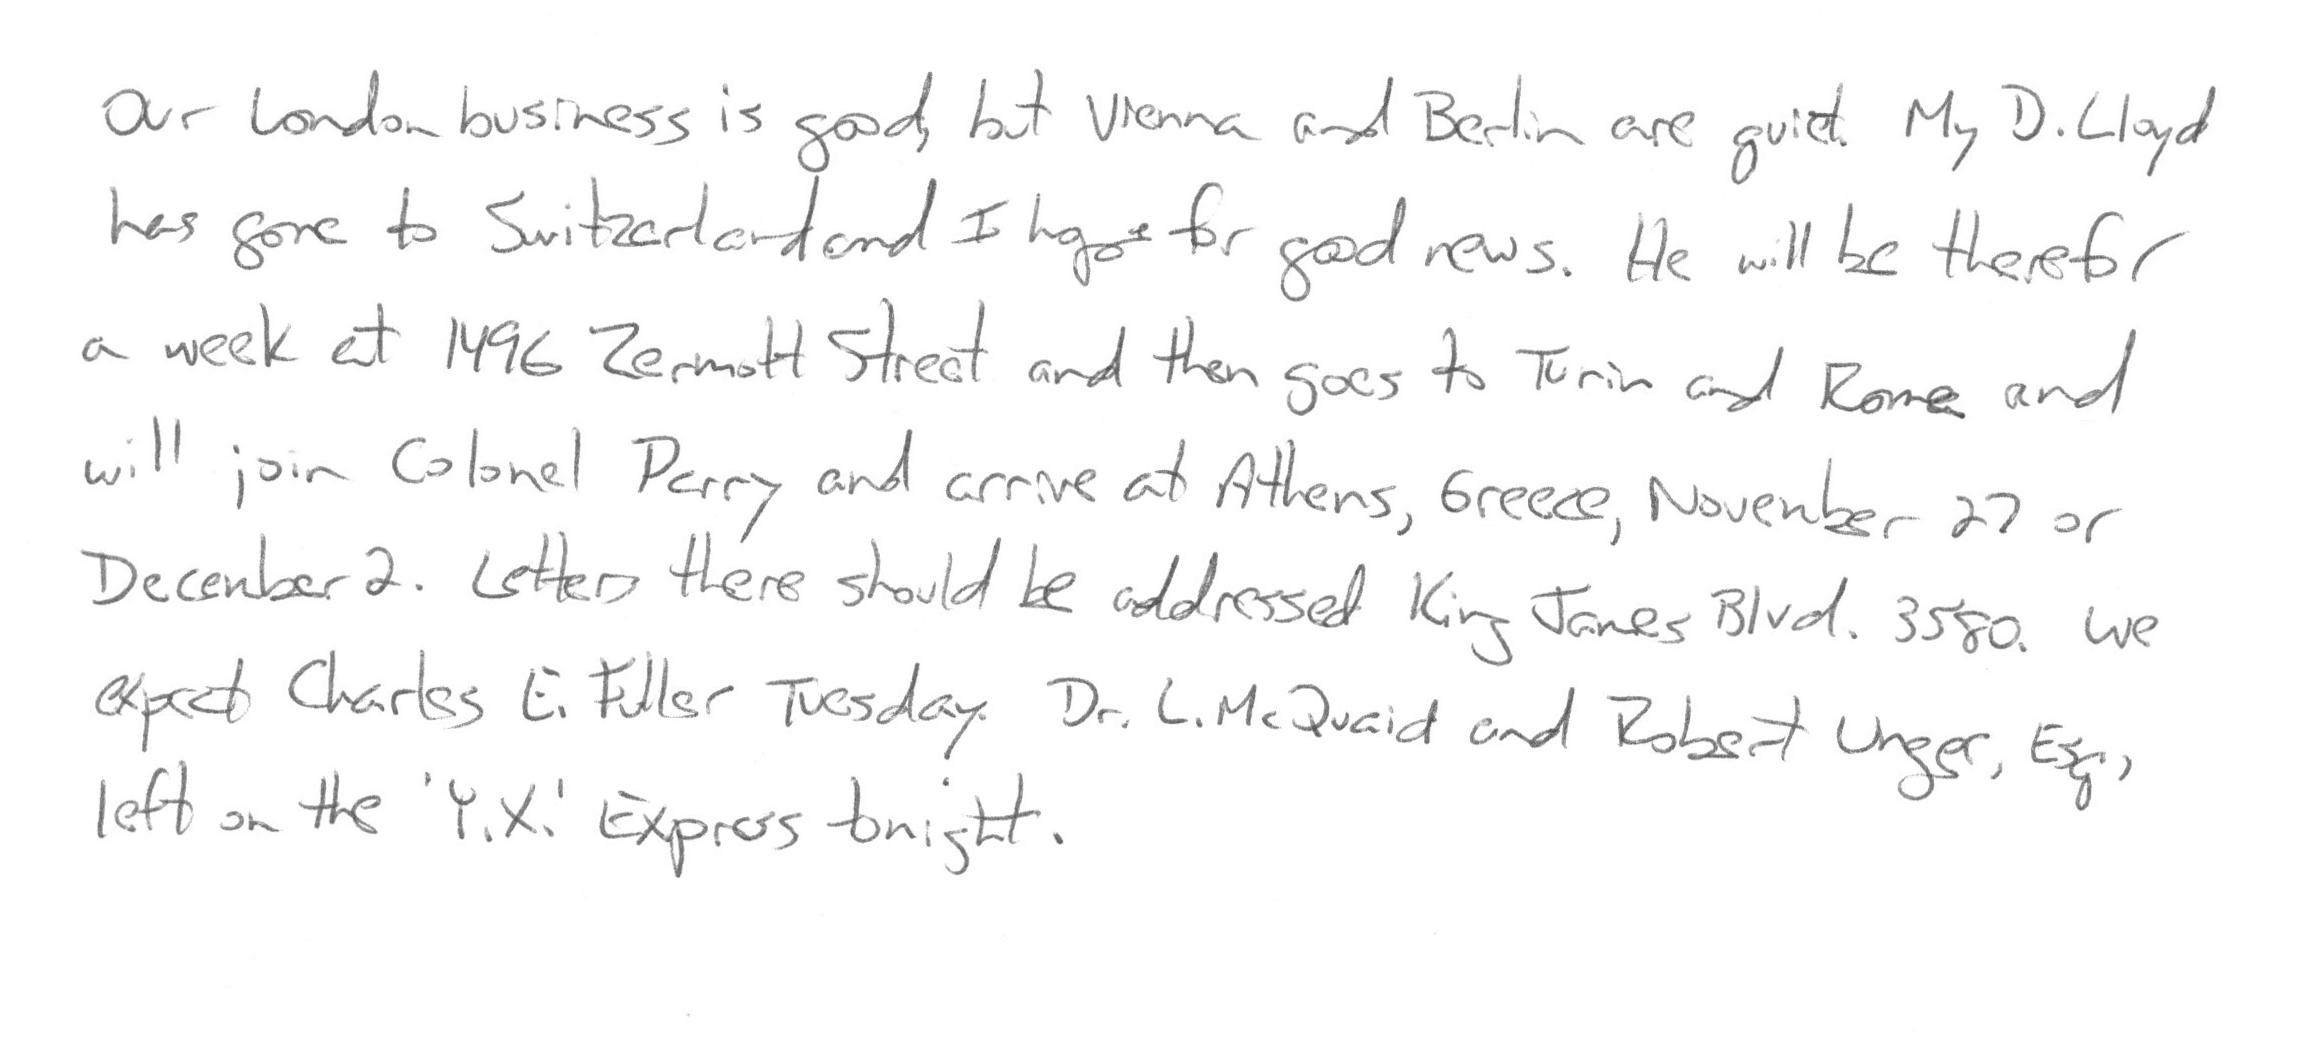 Our London business is good, but Vienna and Berlin are quiet. My D. Lloyd
has gone to Switzerland and I hope for good news. He will be there for
a week at 1496 Zermott Street and then goes to Turin and Rome and
will join Colonel Perry and arrive at Athens, Greece, November 27 or
December 2. Letters there should be addressed King James Blvd. 3580. We
expect Charles E. Fuller Tuesday. Dr. L. McQuaid and Robert Unger, Esq.,
left on the 'Y.X.' Express tonight.